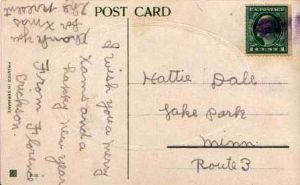 POST CARD
Thank you
for Xmas
the present
I wish you a merry
Xams and a
happy new year
From Florence
Erickson
PRINTED IN GERMANY
U.S. POSTAGE
Hattie Dale
Lake Park
Minn
Route 3